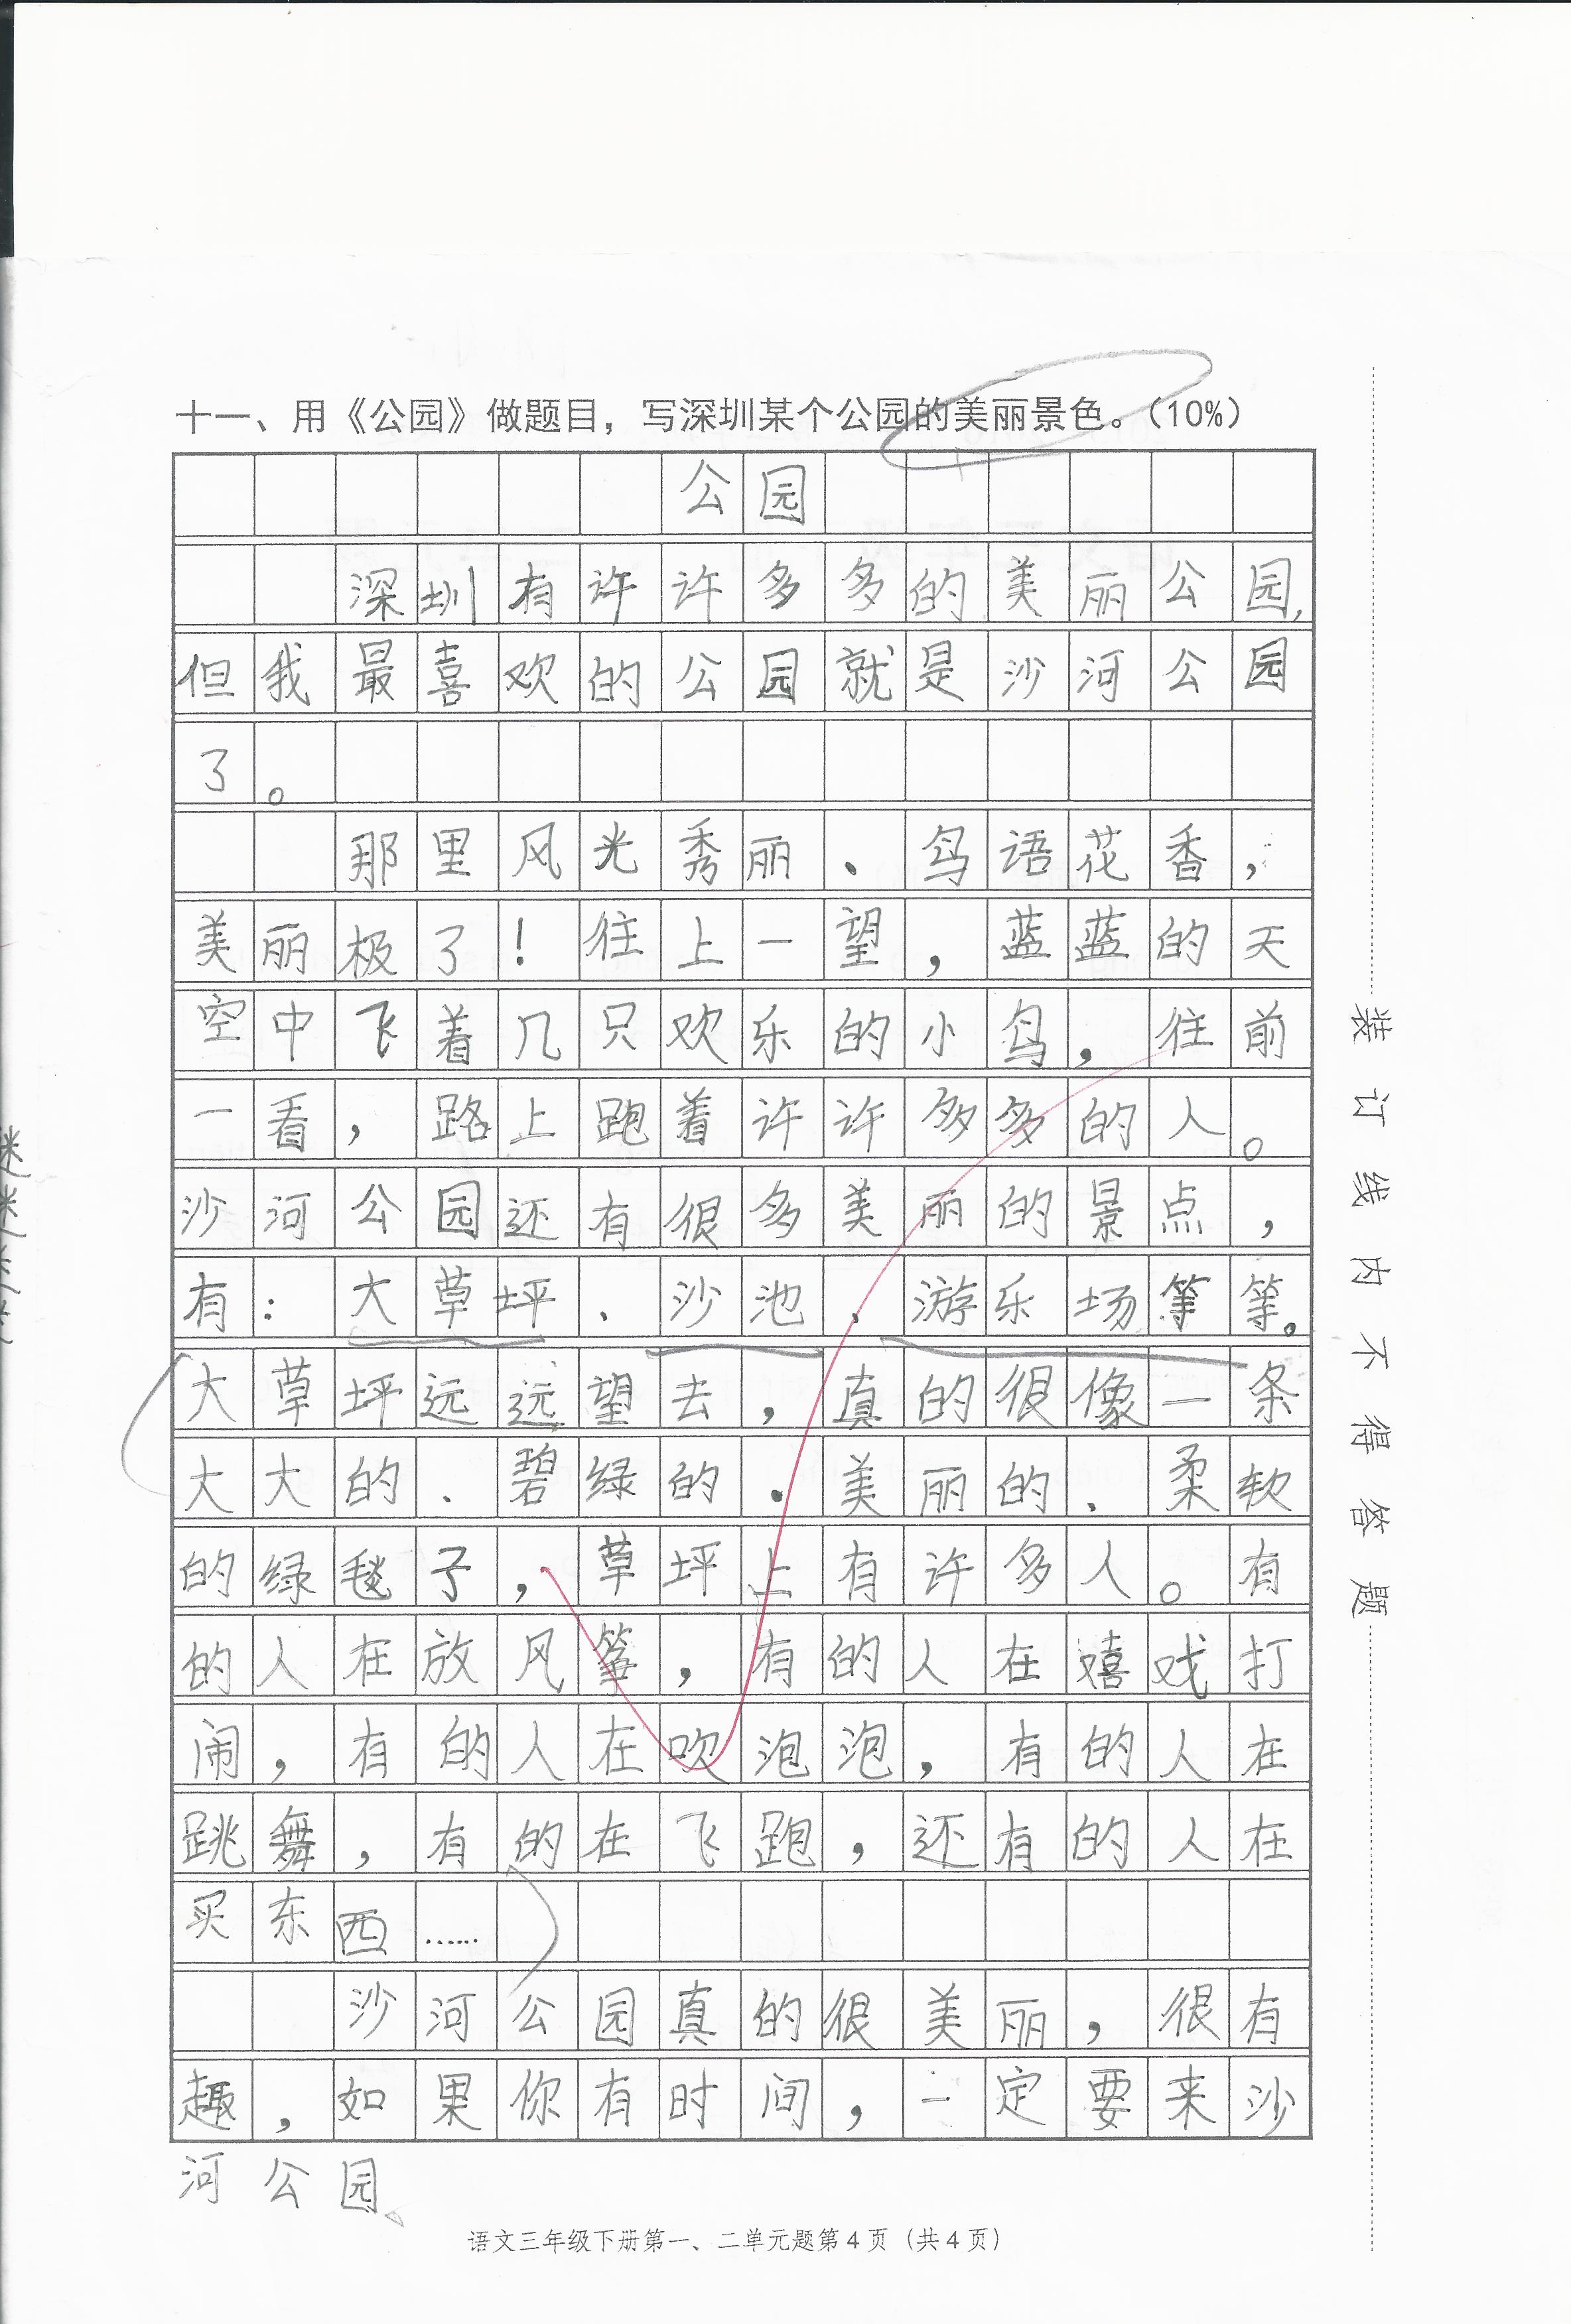 十一、用《公园》做题目，写深圳某个公园的美丽景色。（10%）
公园
深圳有许许多多的美丽公园，
但我最喜欢的公园就是沙河公园
了。
那里风光秀丽、鸟语花香，
美丽极了！往上一望，蓝蓝的天
空中飞着几只欢乐的小鸟，往前
一看，路上跑着许许多多的人。
沙河公园还有很多美丽的景点，
有：大草坪、沙池、游乐场等等。
大草坪远远望去，真的很像一条
大大的、碧绿的、美丽的、柔软
的绿毯子，草坪上有许多人。有
的人在放风筝，有的人在嬉戏打
闹，有的人在吹泡泡，有的人在
跳舞，有的在飞跑，还有的人在
买东西……
沙河公园真的很美丽，很有
趣，如果你有时间，一定要来沙
河公园。
语文三年级下册第一、二单元题第4页（共4页）
装订线内不得答题